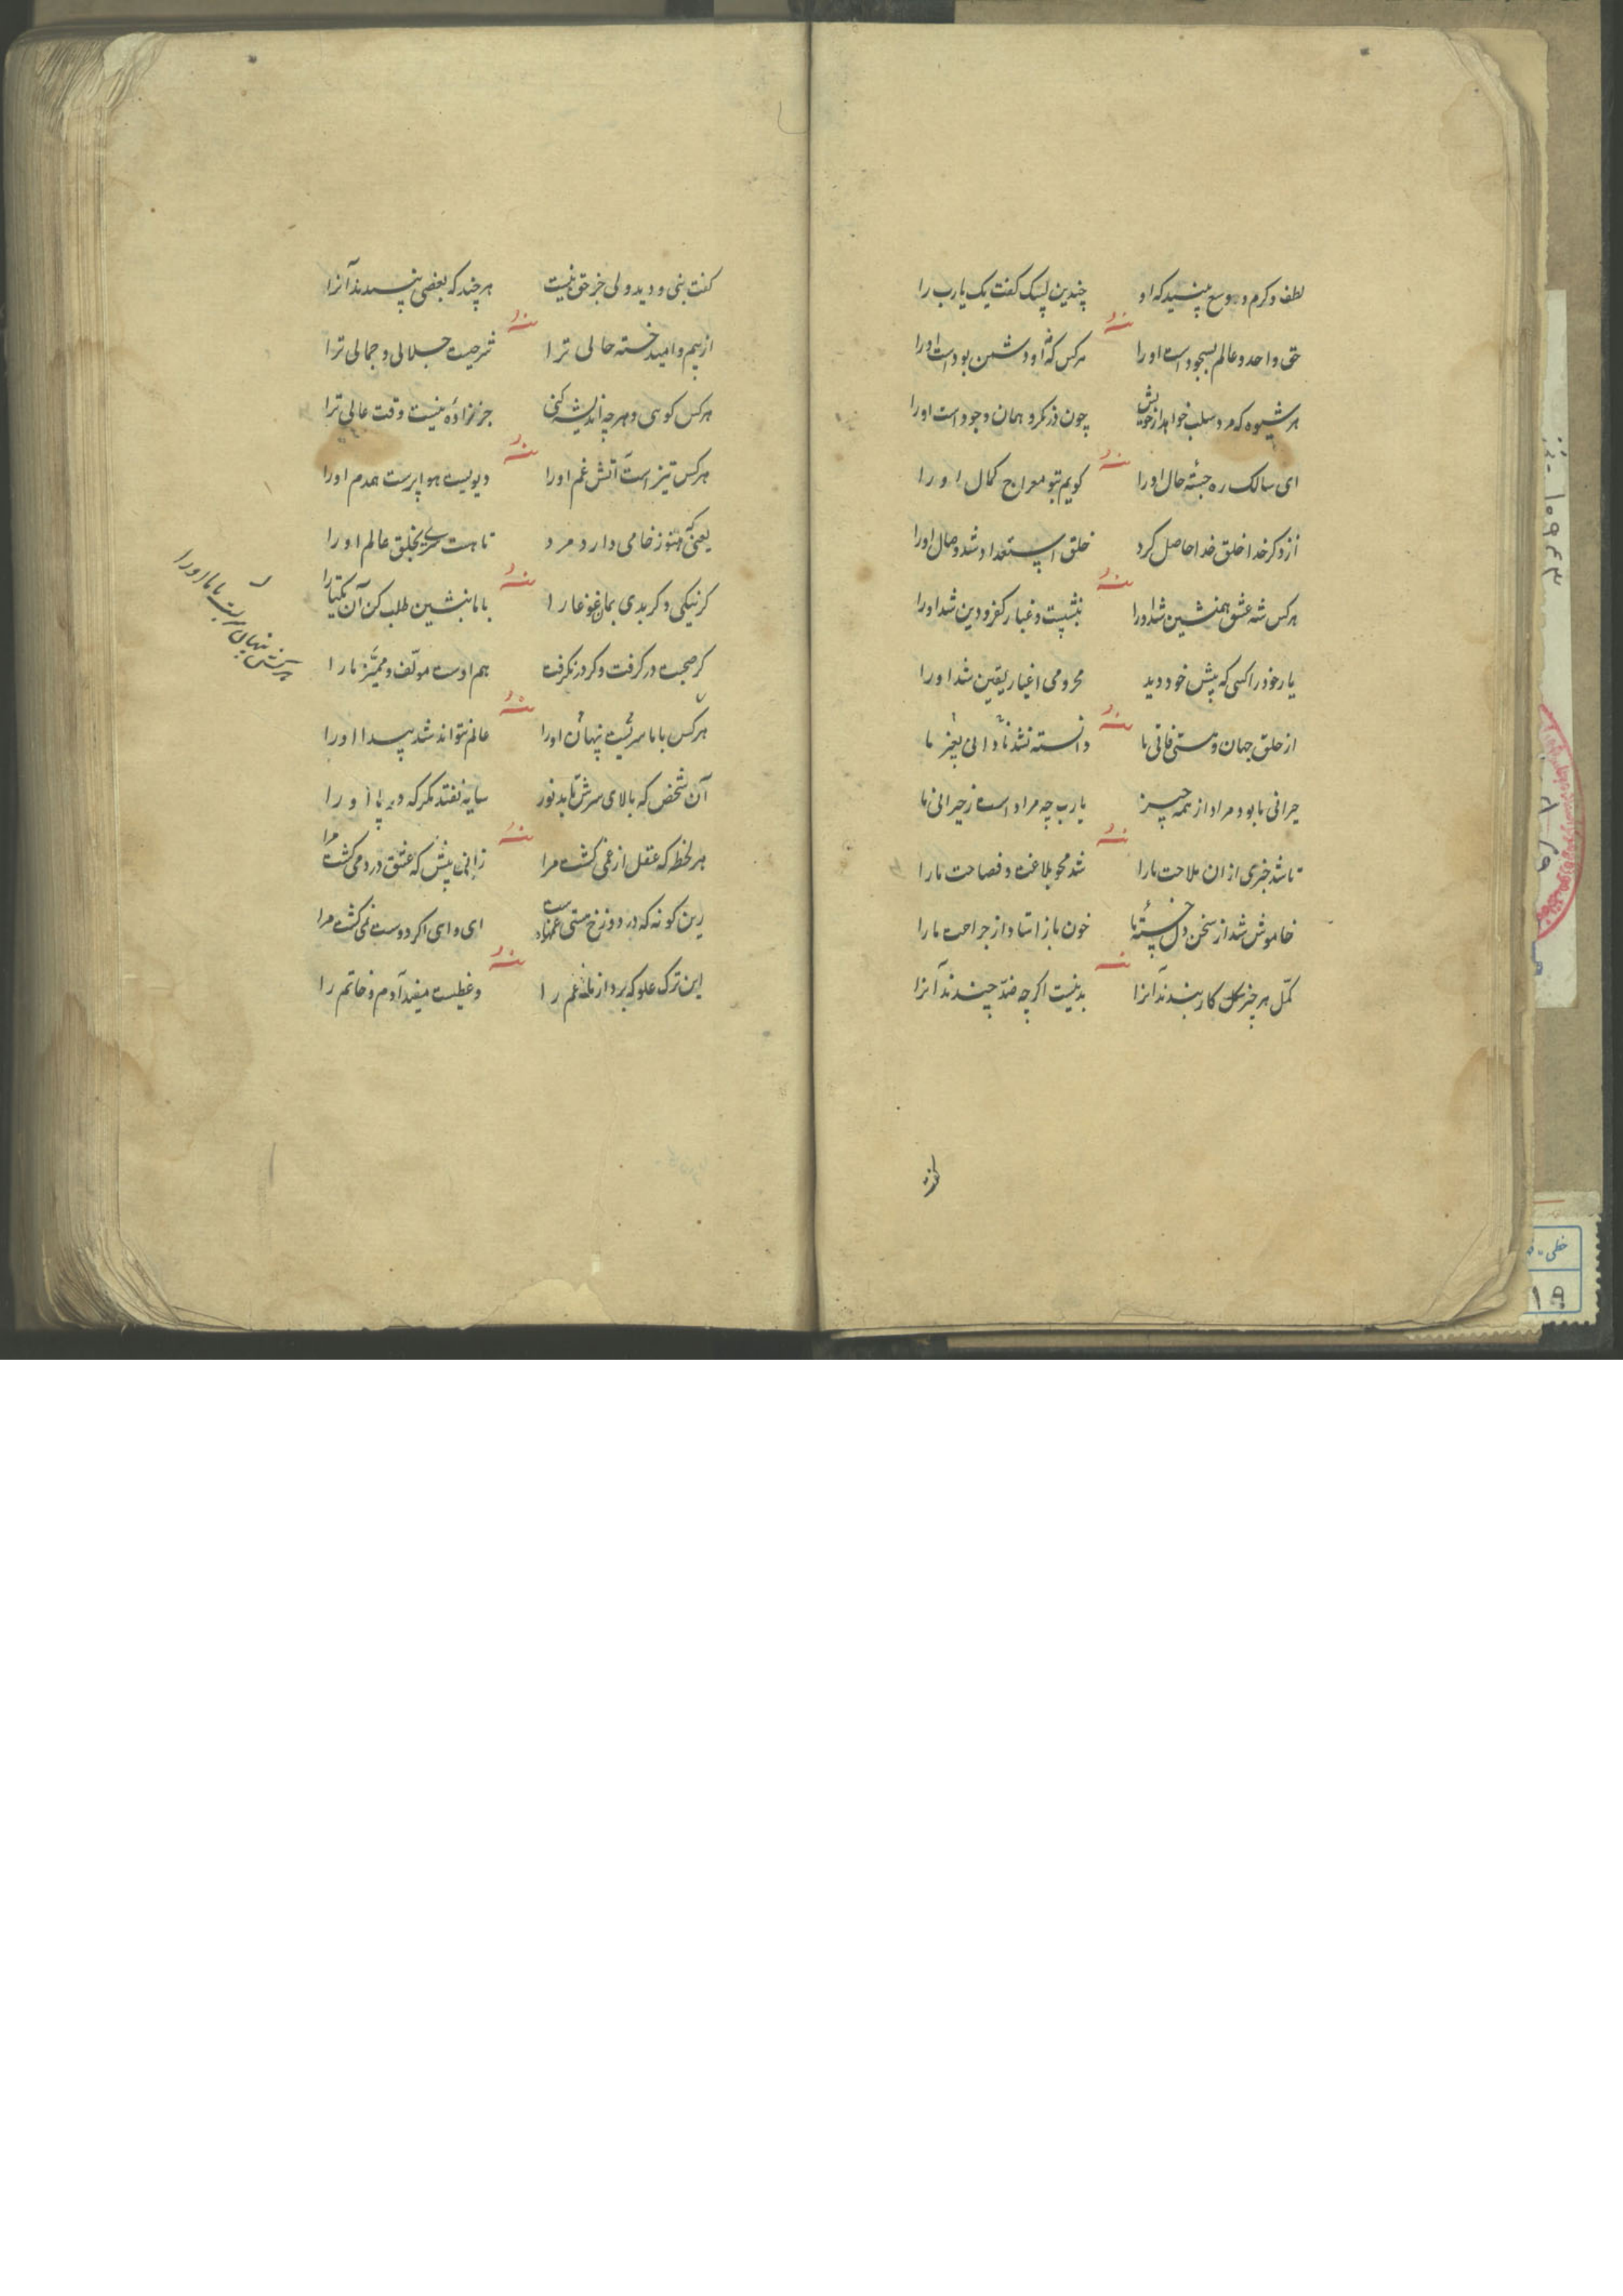 لطف و کرم و وسع ببینید که او چندین لبیک گفت یک یارب را
منه
حق واحد و عالم بسجود است او را هرکس که نه او دشمن بود است او را
هر شیوه که مرد سلب خواهد از خویش چون ذکر کرد همان وجود است او را
منه
ای سالک ره جسته حال او را گویم بتو معراج کمال او را
از ذکر خدا خلق خدا حاصل کرد خلق استعداد شد وصال او را
منه
هرکس شه عشق همنشین شد او را ننشست و غبار کفر و دین شد او را
یار خود را کسی که پیش خود دید محرومی اغیار یقین شد او را
منه
از خلق جهان و هستی فانی ما دانسته نشد نادانی بغیر ما
حیرانی ما بود مراد از همه چیز یارب چه مراد است ز حیرانی ما
منه
تا شد خبری از ان ملاحت ما را شد محو بلاغت و فصاحت ما را
خاموش شد از سخن دل خسته ما خون باز استاد از جراحت ما را
منه
کمّل هر چیز کار بندند آنرا بد نیست اگرچه ضدّ پسندند آنرا
گفت
گفت نبی و دید ولی جز حق نیست هرچند که بعضی نپسندند آنرا
منه
از بیم و امید خسته حالی ترا شرحیست جلالی و جمالی ترا
هرکس گوئی و هرچه اندیشه کنی جز زاده نیست وقت عالی ترا
منه
هرکس تیز است آتش غم او را دیویست هوا پرست همدم او را
یعنی که هنوز خامی دارد مرد تا هست سری بخلق عالم او را
منه
گر نیکی و گر بدی بمان غوغا را با ما بنشین طلب کن آن یکتا را
گر صحبت در گرفت و گر در نگرفت هم اوست مولّف و ممیّز ما را
منه
هرکس با ما سریست پنهان او را عالم نتواند شد پیدا او را
سریست نهان با ما او را
آن شخص که بالای سرش تابد نور سایه نفتد مگر که در پا او را
منه
هر لحظه که عقل از غمی کشت مرا زانی پیش که عشق در دمی کشت مرا
زین گونه که در دوزخ هستی ای وای اگر دوست نمی کشت مرا
منه
این ترک علو که برد از ما غم را و عظیست مفید آدم و خاتم را
۱۰۹۶۳
خطی
۱۹